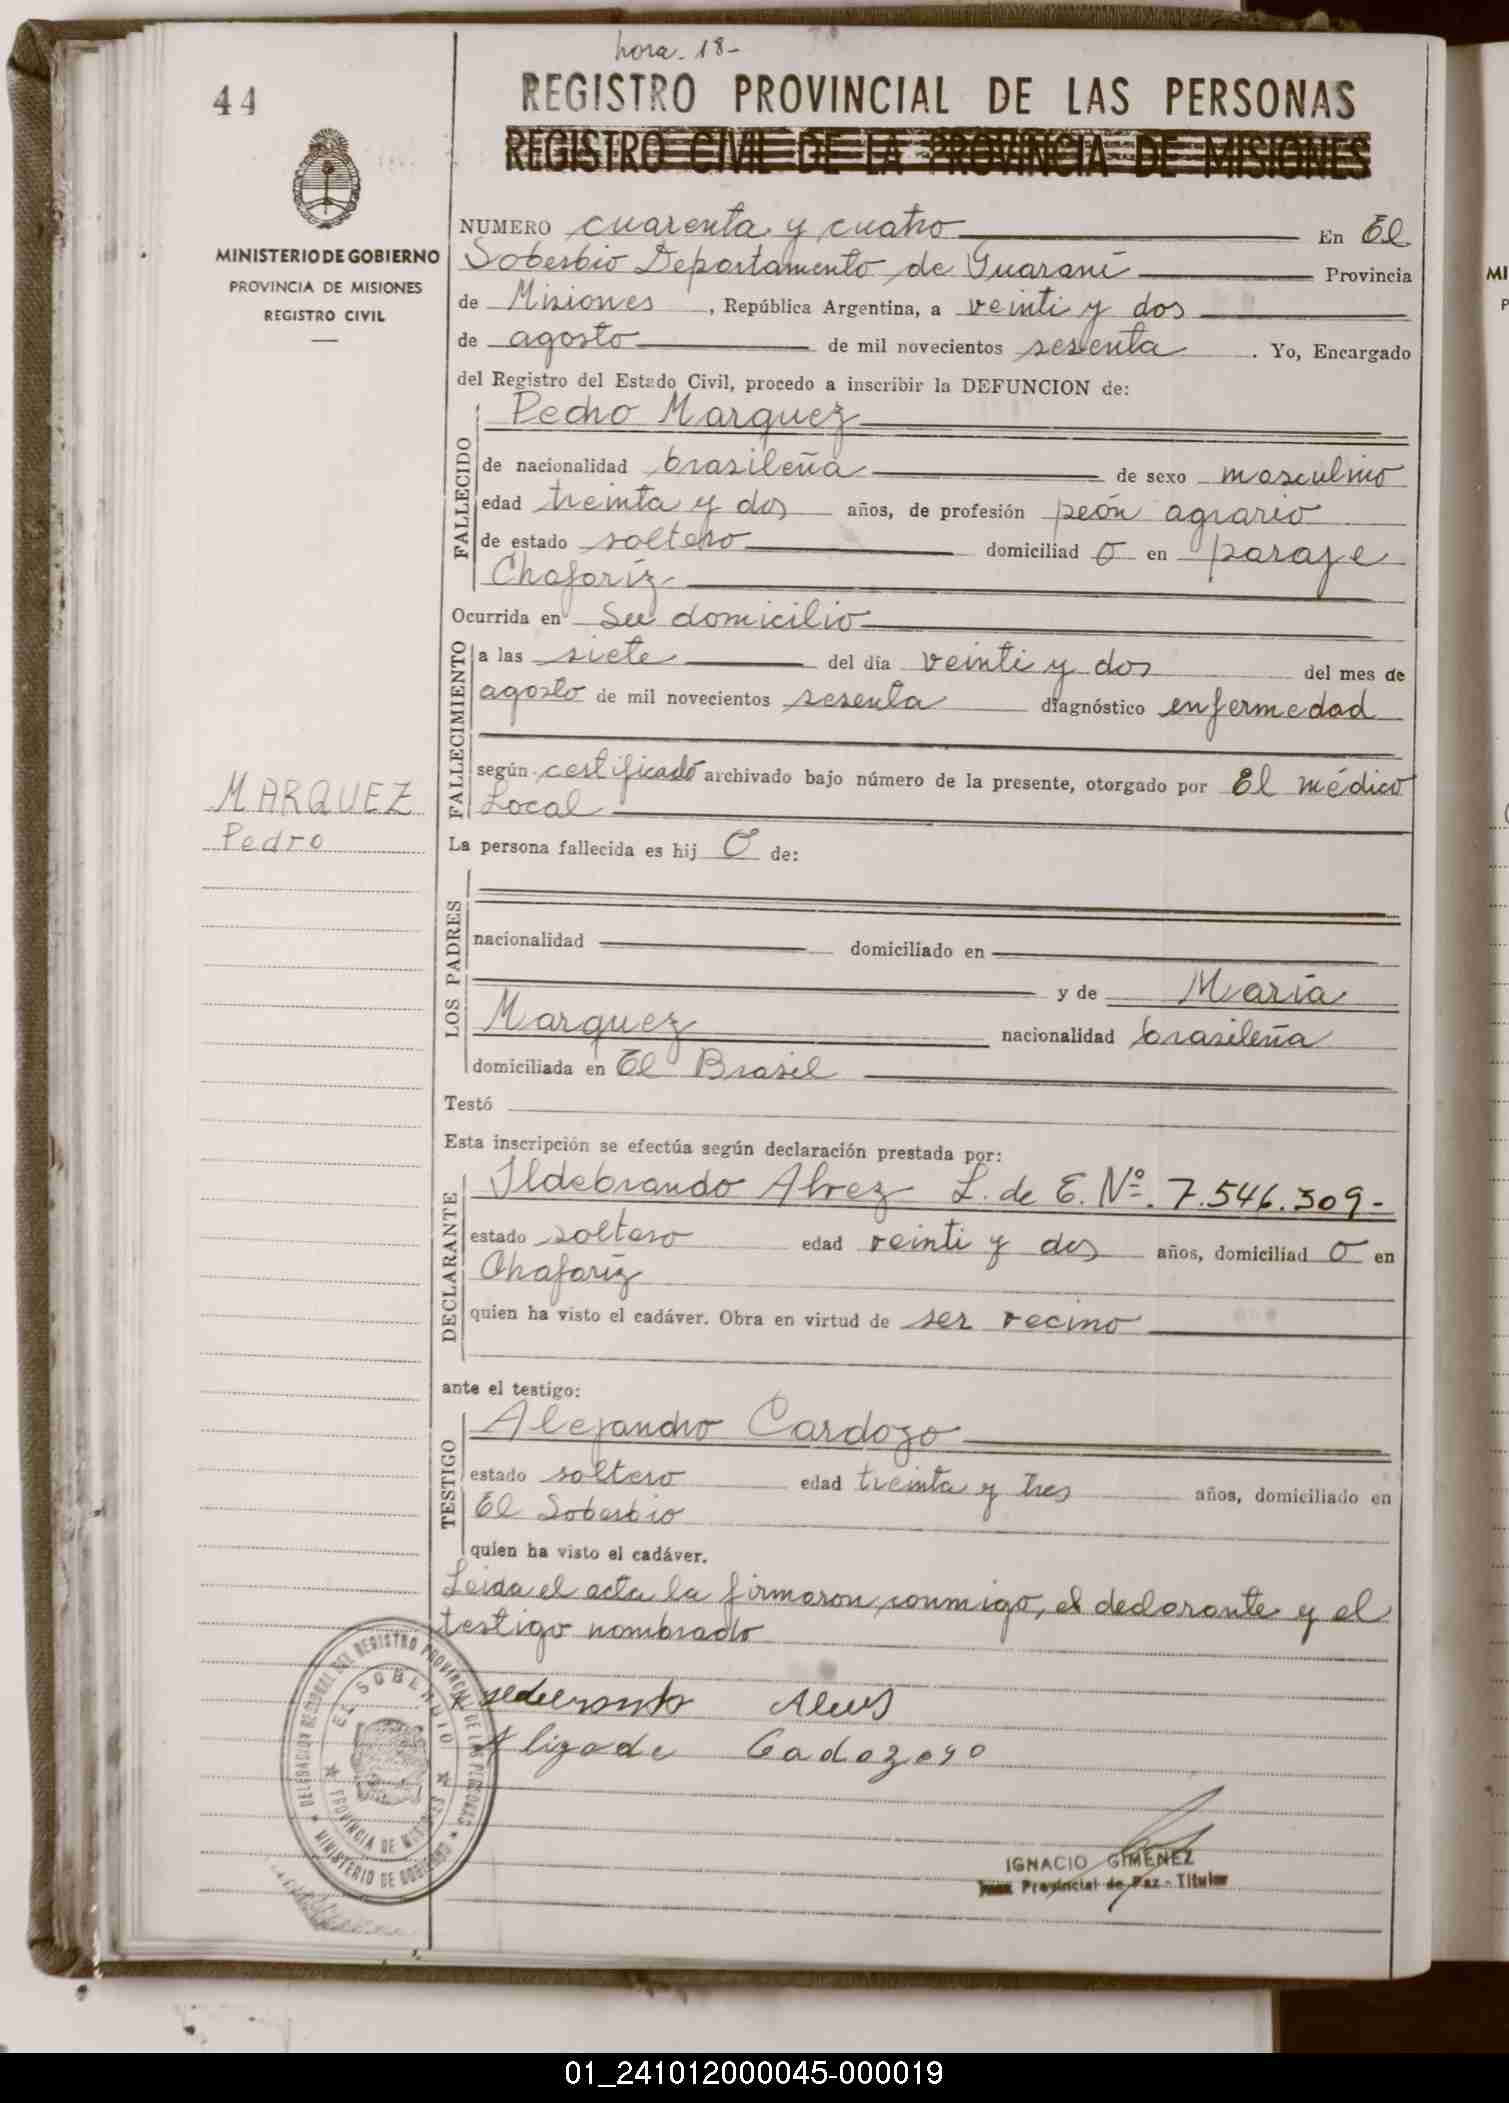 hora. 18-
44
REGISTRO PROVINCIAL DE LAS PERSONAS
REGISTRO CIVIL DE LA PROVINCIA DE MISIONES
MINISTERIO DE GOBIERNO
PROVINCIA DE MISIONES
REGISTRO CIVIL
NUMERO cuarenta y cuatro En El
Soberbio Departamento de Guaraní Provincia
de Misiones, República Argentina, a veinti y dos
de agosto de mil novecientos sesenta. Yo, Encargado
del Registro del Estado Civil, procedo a inscribir la DEFUNCION de:
FALLECIDO
Pedro Marquez
de nacionalidad brasileña de sexo masculino
edad treinta y dos años, de profesión peón agrario
de estado soltero domiciliad o en paraje
Chafariz
Ocurrida en Su domicilio
FALLECIMIENTO
a las siete del día veinti y dos del mes de
agosto de mil novecientos sesenta diagnóstico enfermedad
según certificado archivado bajo número de la presente, otorgado por El médico
Local
MARQUEZ
Pedro
La persona fallecida es hij o de:
LOS PADRES
nacionalidad domiciliado en
y de María
Marquez nacionalidad brasileña
domiciliada en El Brasil
Testó
Esta inscripción se efectúa según declaración prestada por:
DECLARANTE
Ildebrando Alvez L. de E. Nº. 7.546.309-
estado soltero edad veinti y dos años, domiciliad o en
Chafariz
quien ha visto el cadáver. Obra en virtud de ser vecino
ante el testigo:
TESTIGO
Alejandro Cardozo
estado soltero edad treinta y tres años, domiciliado en
El Soberbio
quien ha visto el cadáver.
Leida el acta la firmaron conmigo, el declarante y el
testigo nombrado
DELEGACION REGIONAL DEL REGISTRO PROVINCIAL DE LAS PERSONAS
EL SOBERBIO
PROVINCIA DE MISIONES
MINISTERIO DE GOBIERNO
IGNACIO GIMENEZ
Juez Provincial de Paz - Titular
01_241012000045-000019